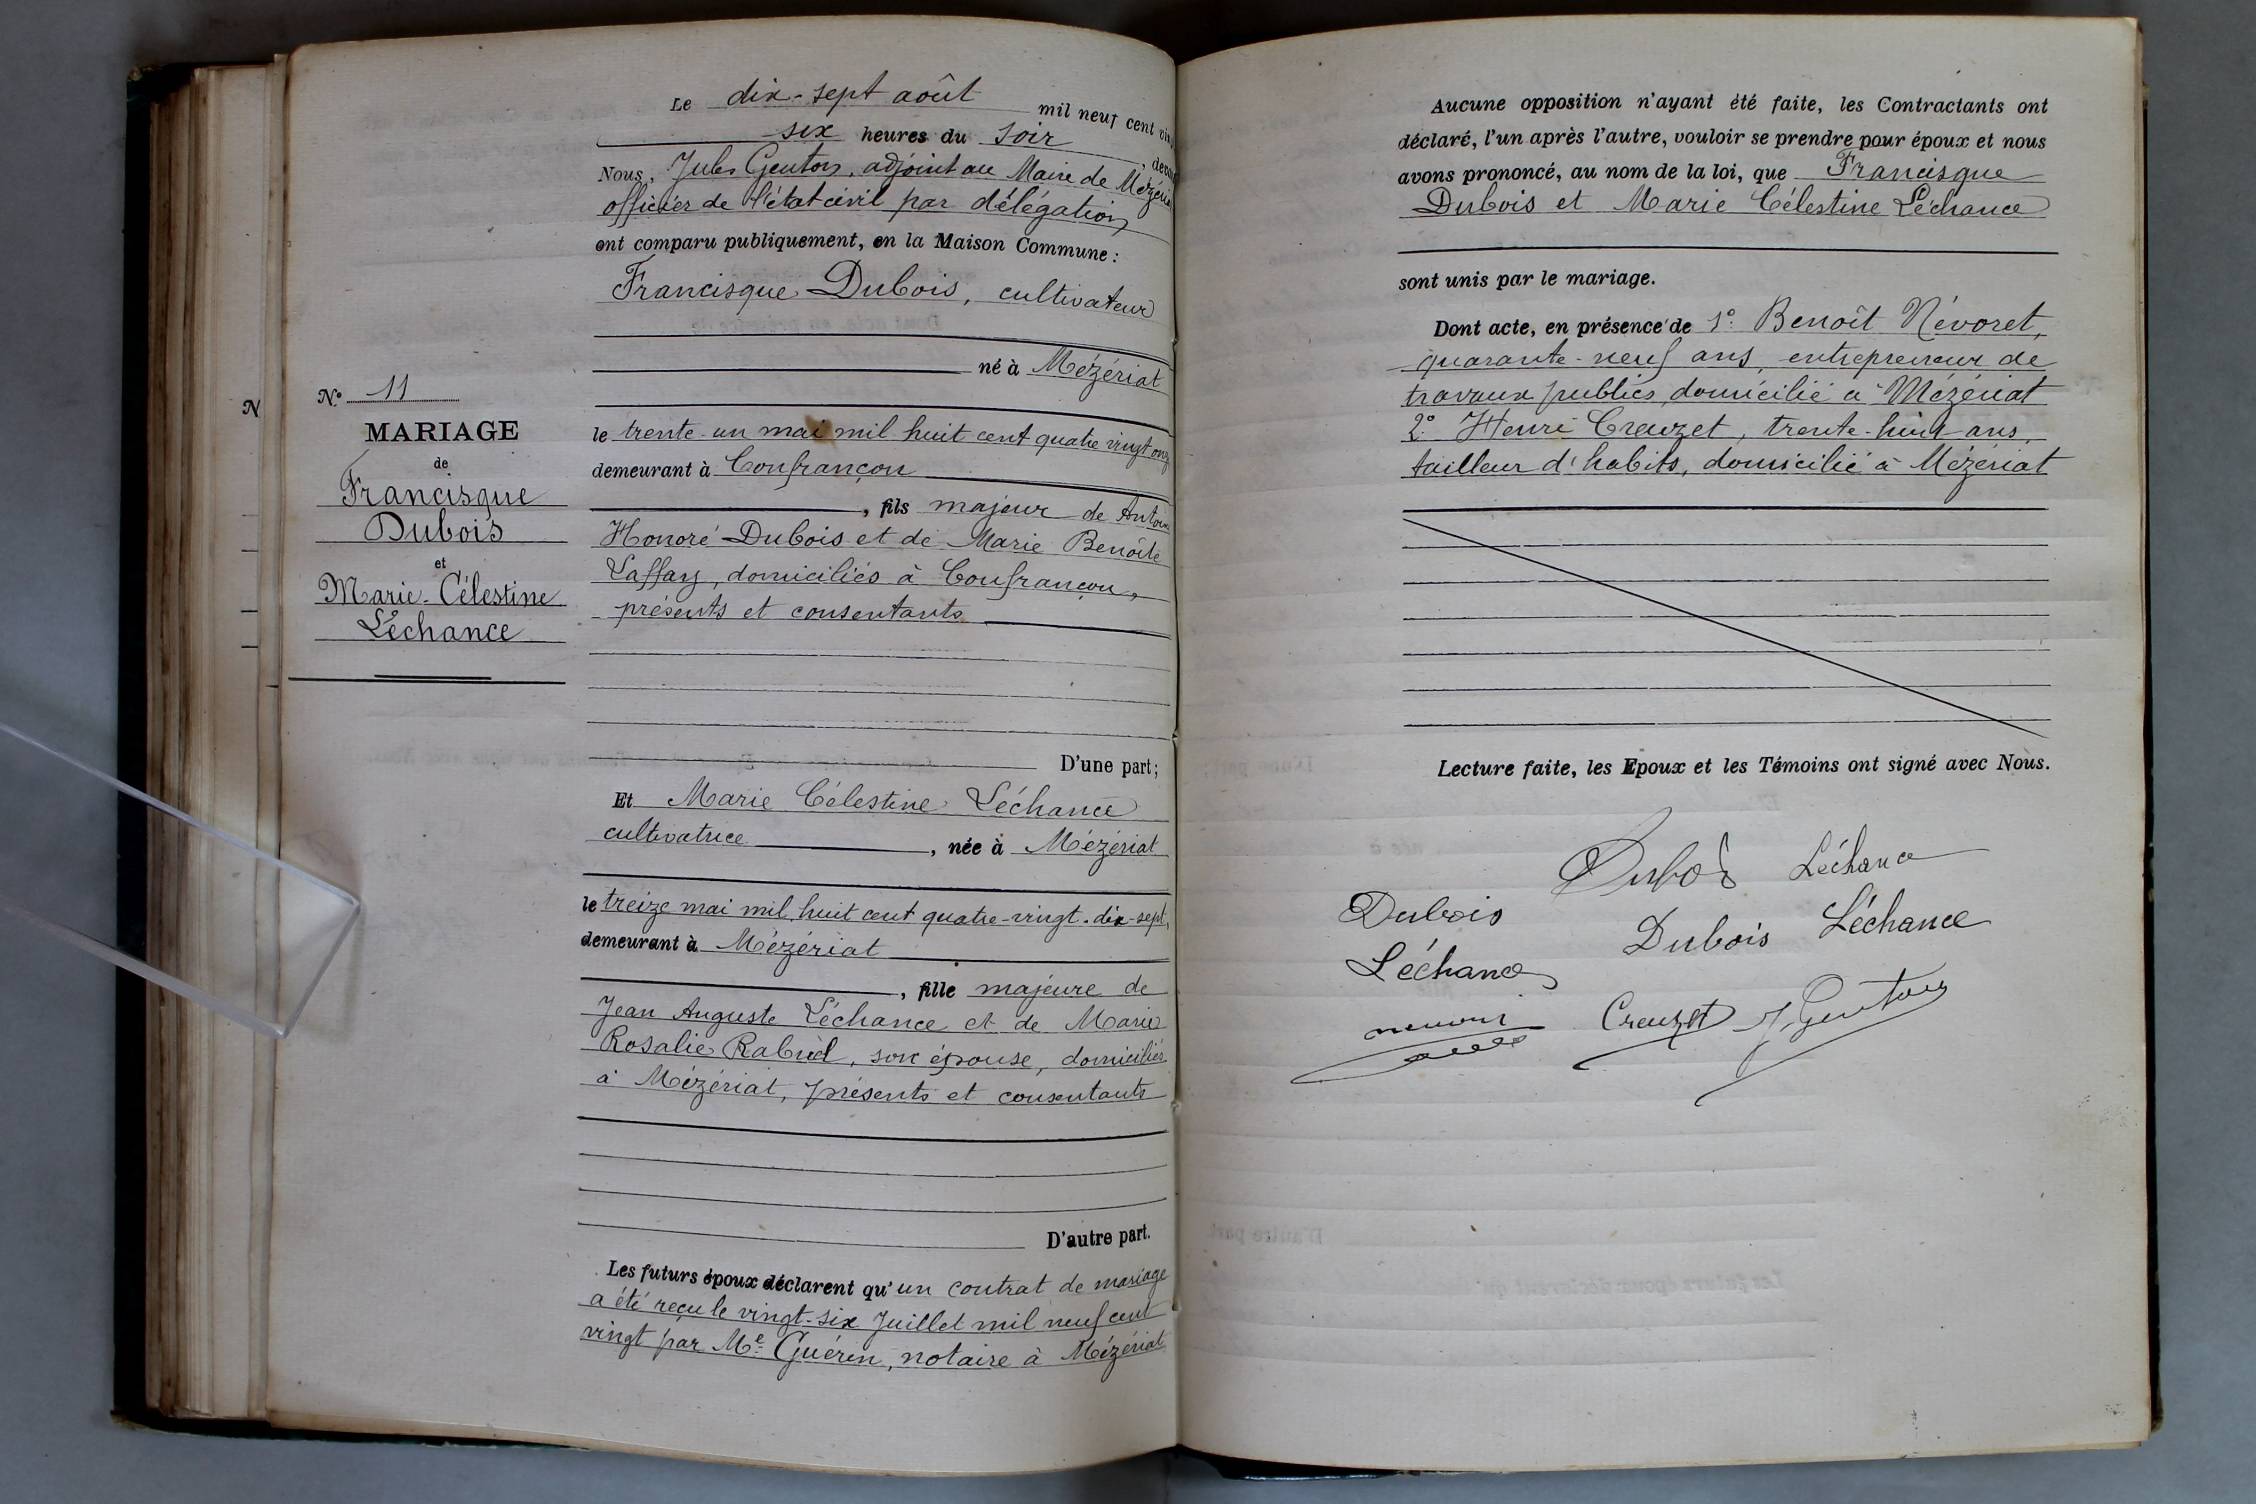 N
N° 11
MARIAGE
de
Francisque
Dubois
et
Marie-Célestine
Léchance
Le dix-sept août mil neuf cent
six heures du soir
Nous, Jules Genton, adjoint au Maire de
officier de l'état civil par délégation,
ont comparu publiquement, en la Maison Commune :
Francisque Dubois, cultivateur
né à Mézériat
le trente-un mai mil huit cent quatre vingt
demeurant à Confrançon
, fils majeur de
Honoré Dubois et de Marie Benoîte
Laffay, domiciliés à Confrançon,
présents et consentants
D'une part ;
Et Marie Célestine Léchance
cultivatrice, née à Mézériat
le treize mai mil huit cent quatre-vingt-dix-sept,
demeurant à Mézériat
, fille majeure de
Jean Auguste Léchance et de Marie
Rosalie Rabuel, son épouse, domiciliés
à Mézériat, présents et consentants
D'autre part.
Les futurs époux déclarent qu'un contrat de mariage
a été reçu le vingt-six Juillet mil neuf cent
vingt par Me Guérin, notaire à Mézériat
Aucune opposition n'ayant été faite, les Contractants ont
déclaré, l'un après l'autre, vouloir se prendre pour époux et nous
avons prononcé, au nom de la loi, que Francisque
Dubois et Marie Célestine Léchance
sont unis par le mariage.
Dont acte, en présence de 1° Benoît Névoret,
quarante-neuf ans, entrepreneur de
travaux publics, domicilié à Mézériat
2° Henri Creuzet, trente-huit ans,
tailleur d'habits, domicilié à Mézériat
Lecture faite, les Epoux et les Témoins ont signé avec Nous.
Dubois Léchance
Dubois
Dubois Léchance
Léchance
Creuzet J. Genton